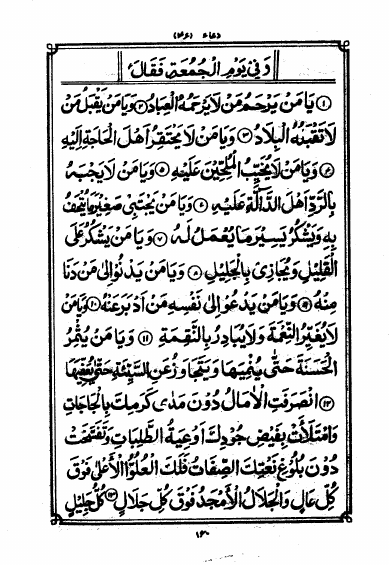 دعاء (٤٦)
وَفِي يَوْمِ الْجُمُعَةِ فَقَالَ
① يَا مَنْ يَرْحَمُ مَنْ لَا يَرْحَمُهُ الْعِبَادُ ② وَيَا مَنْ يَقْبَلُ مَنْ
لَا تَقْبَلُهُ الْبِلَادُ ③ وَيَا مَنْ لَا يَحْتَقِرُ أَهْلَ الْحَاجَةِ إِلَيْهِ
④ وَيَا مَنْ لَا يُخَيِّبُ الْمُلِحِّينَ عَلَيْهِ ⑤ وَيَا مَنْ لَا يَجْبَهُ
بِالرَّدِّ أَهْلَ الدَّالَّةِ عَلَيْهِ ⑥ وَيَا مَنْ يَجْتَبِي صَغِيرَ مَا يُتْحَفُ
بِهِ وَيَشْكُرُ يَسِيرَ مَا يُعْمَلُ لَهُ ⑦ وَيَا مَنْ يَشْكُرُ عَلَى
الْقَلِيلِ وَيُجَازِي بِالْجَلِيلِ ⑧ وَيَا مَنْ يَدْنُو إِلَى مَنْ دَنَا
مِنْهُ ⑨ وَيَا مَنْ يَدْعُو إِلَى نَفْسِهِ مَنْ أَدْبَرَ عَنْهُ ⑩ وَيَا مَنْ
لَا يُغَيِّرُ النِّعْمَةَ وَلَا يُبَادِرُ بِالنَّقِمَةِ ⑪ وَيَا مَنْ يُثْمِرُ
الْحَسَنَةَ حَتَّى يُنْمِيَهَا وَيَتَجَاوَزُ عَنِ السَّيِّئَةِ حَتَّى يُعَفِّيَهَا
⑫ انْصَرَفَتِ الْآمَالُ دُونَ مَدَى كَرَمِكَ بِالْحَاجَاتِ
وَامْتَلَأَتْ بِفَيْضِ جُودِكَ أَوْعِيَةُ الطَّلِبَاتِ وَتَفَسَّخَتْ
دُونَ بُلُوغِ نَعْتِكَ الصِّفَاتُ فَلَكَ الْعُلُوُّ الْأَعْلَى فَوْقَ
كُلِّ عَالٍ وَالْجَلَالُ الْأَمْجَدُ فَوْقَ كُلِّ جَلَالٍ ⑬ كُلُّ جَلِيلٍ
١٦٠